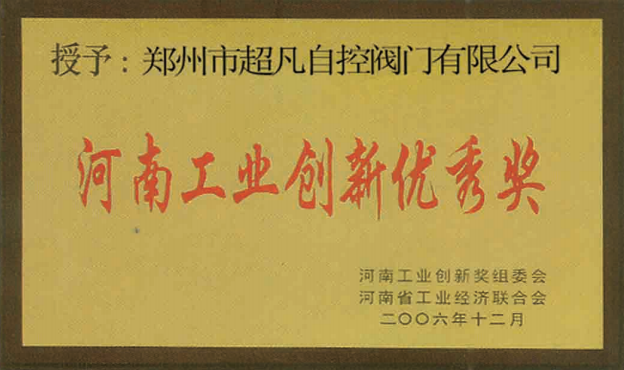 授予：郑州市超凡自控阀门有限公司
河南工业创新优秀奖
河南工业创新奖组委会
河南省工业经济联合会
二〇〇六年十二月